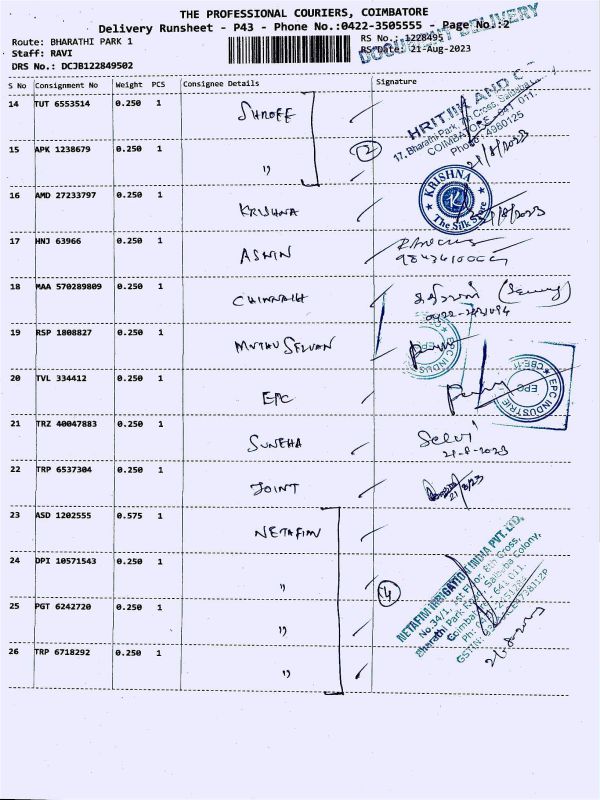 THE PROFESSIONAL COURIERS, COIMBATORE
Delivery Runsheet - P43 - Phone No.:0422-3505555 - Page No.:2
DOCUMENT DELIVERY
Route: BHARATHI PARK 1
RS No.: 1228495
Staff: RAVI
RS Date: 21-Aug-2023
DRS No.: DCJB122849502
S No Consignment No Weight PCS Consignee Details Signature
14 TUT 6553514 0.250 1 SHROFF
HRITIK AND
17, Bharathi Park, Cross, Saibaba
COIMBATORE - 641 011.
Phone: 4960125
21/8/2023
15 APK 1238679 0.250 1 " 2
16 AMD 27233797 0.250 1 KRISHNA
KRISHNA
The Silk Store
21/8/2023
17 HNJ 63966 0.250 1 ASWIN
18 MAA 570289809 0.250 1 CHINNAIH
19 RSP 1808827 0.250 1 MUTHU SELVAN
20 TVL 334412 0.250 1 EPC
EPC INDUSTRIE
CBE-11
EPC
21 TRZ 40047883 0.250 1 SUNEHA
Selvi
21-8-2023
22 TRP 6537304 0.250 1 JOINT
21/8/23
23 ASD 1202555 0.575 1 NETAFIM
NETAFIM IRRIGATION INDIA PVT. LTD.
No.34/1, 1st Floor, 8th Cross,
Bharathi Park Road, Saibaba Colony,
Coimbatore - 641 011.
24 DPI 10571543 0.250 1 " 4
25 PGT 6242720 0.250 1 "
21-8-2023
26 TRP 6718292 0.250 1 "